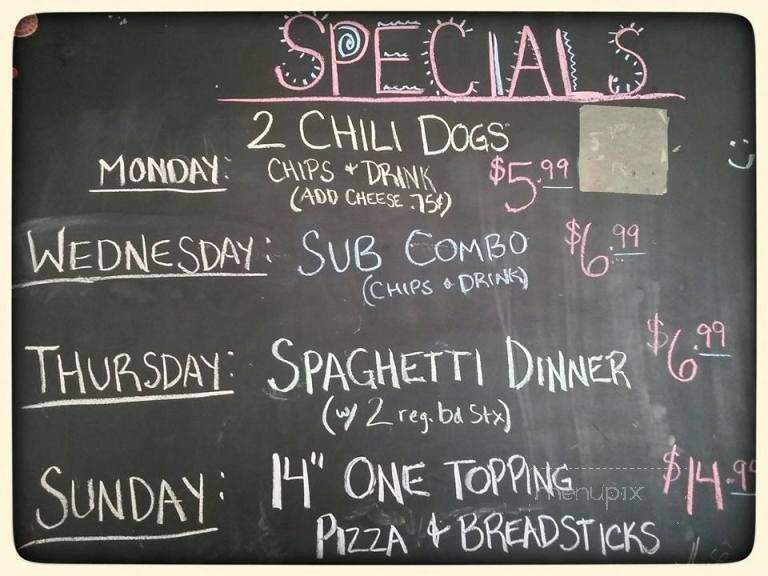 SPECIALS
2 CHILI DOGS
MONDAY: CHIPS + DRINK $5.99
(ADD CHEESE .75¢)
WEDNESDAY: SUB COMBO $6.99
(CHIPS + DRINK)
THURSDAY: SPAGHETTI DINNER $6.99
(w/ 2 reg. bd Stx)
SUNDAY: 14" ONE TOPPING $14.99
menupix
PIZZA & BREADSTICKS